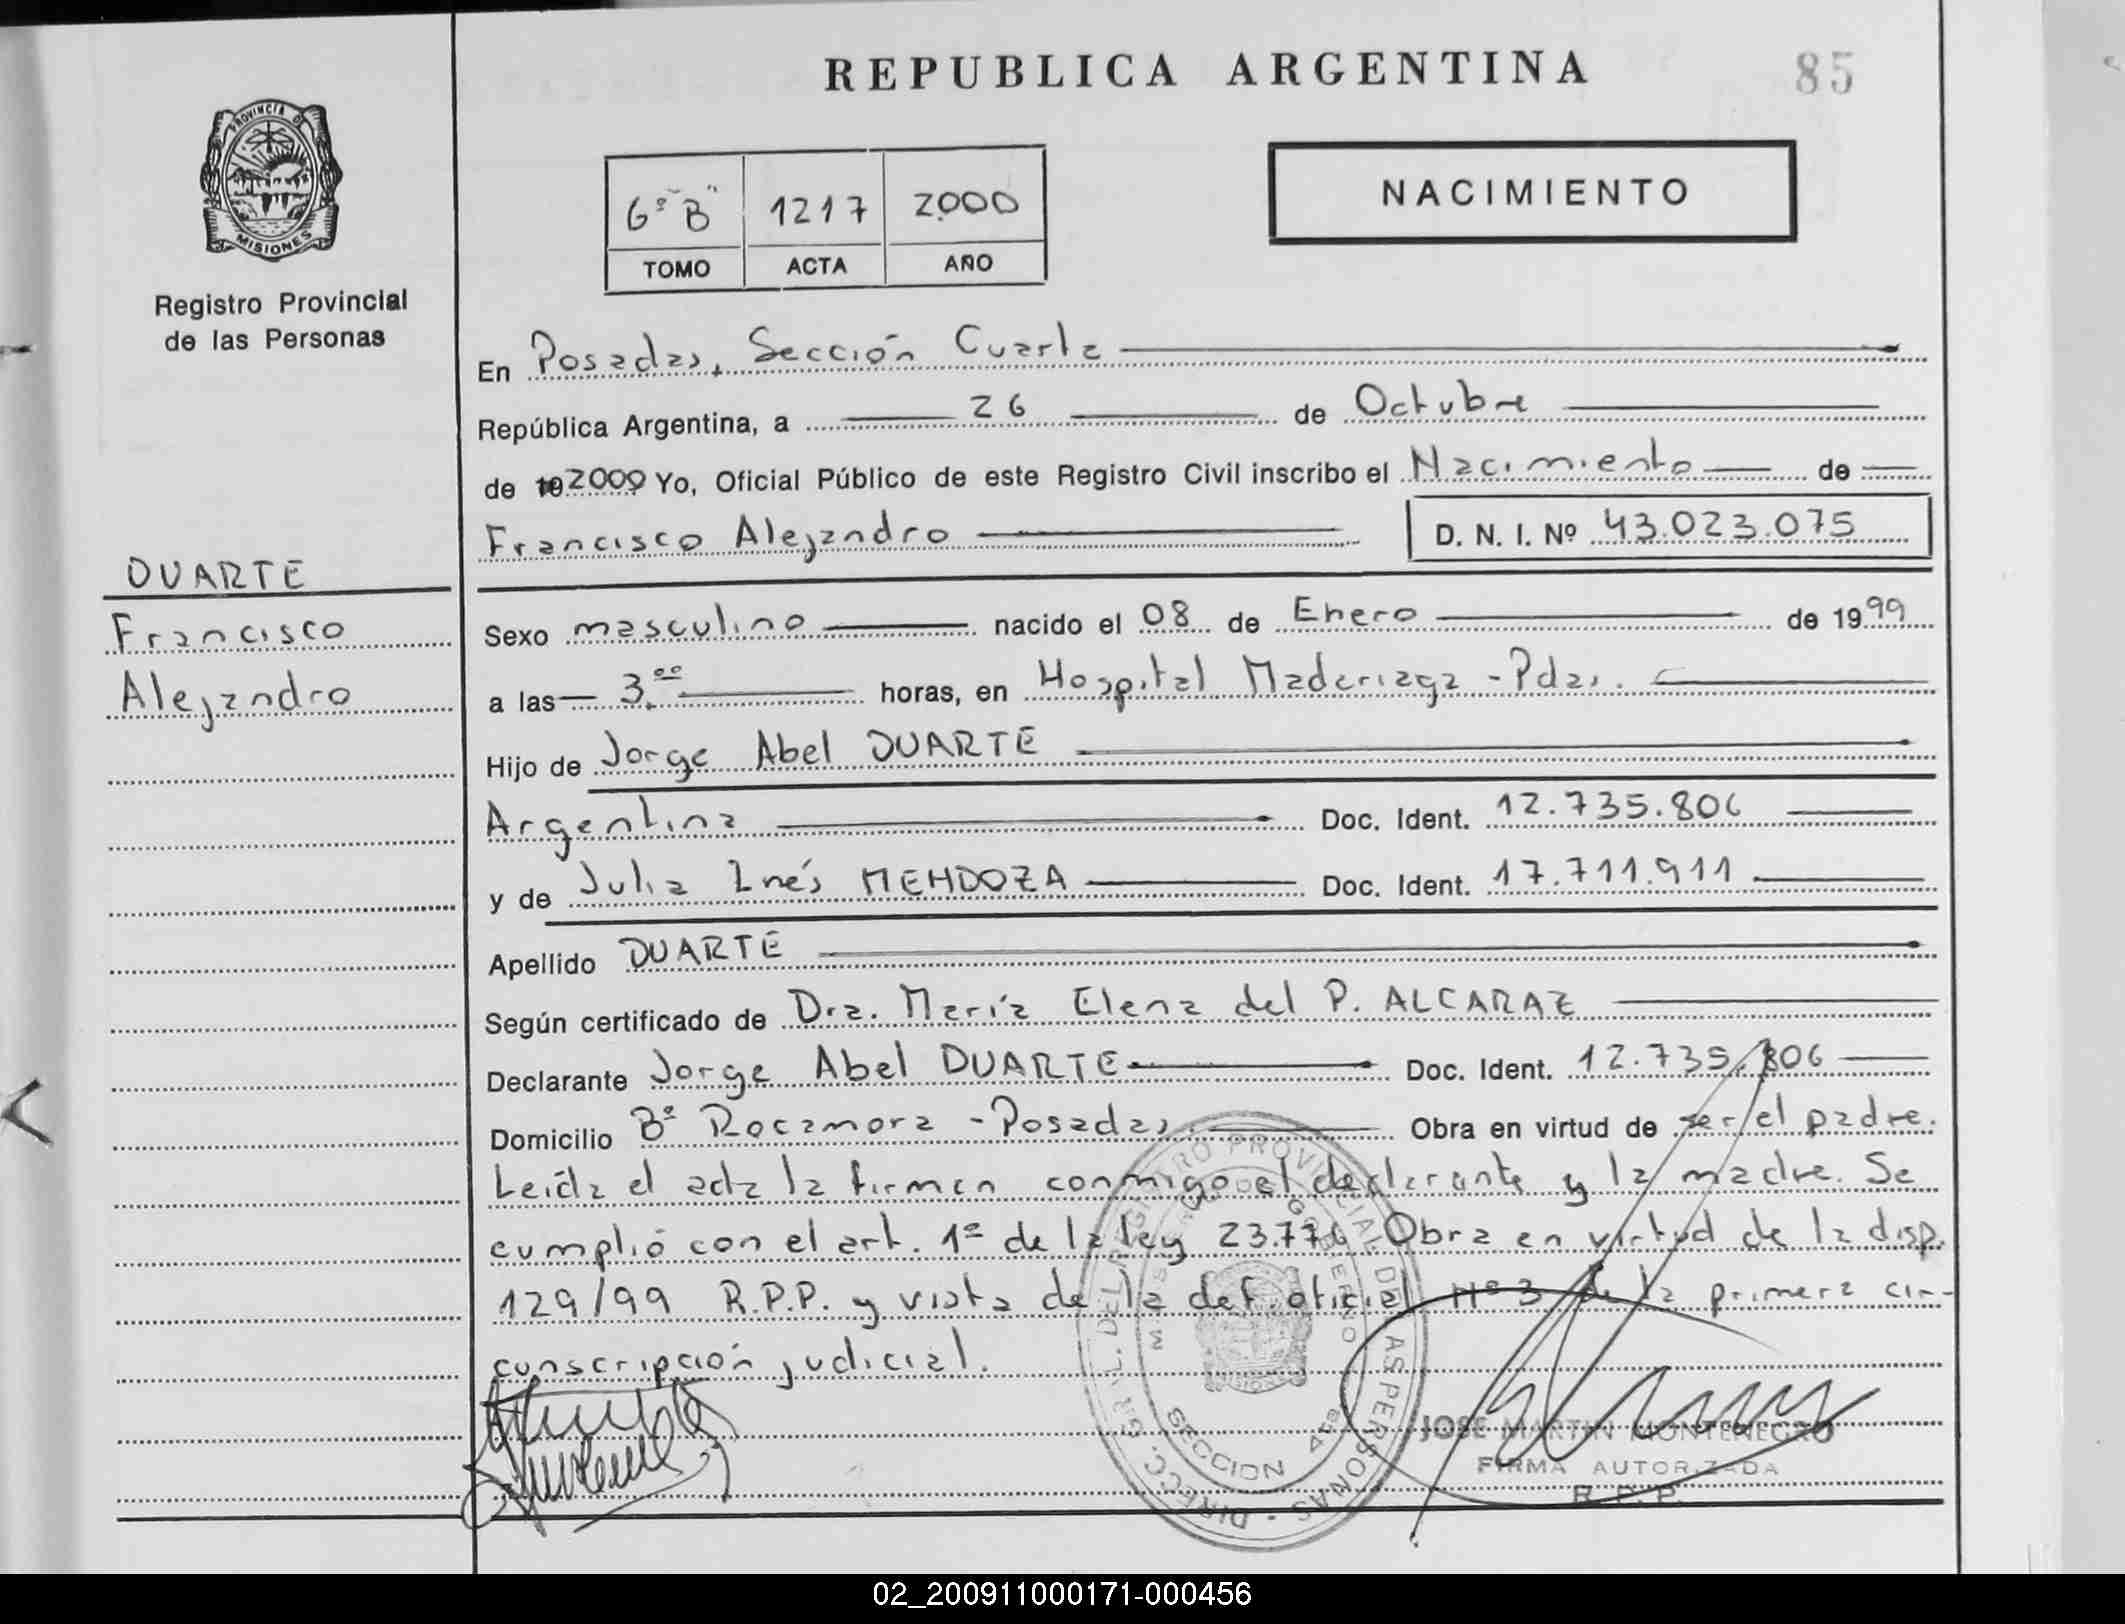 REPUBLICA ARGENTINA
85
PROVINCIA DE
MISIONES
Registro Provincial
de las Personas
6º "B" 1217 2000
TOMO ACTA AÑO
NACIMIENTO
En Posadas, Sección Cuarta
República Argentina, a 26 de Octubre
de 2000 Yo, Oficial Público de este Registro Civil inscribo el Nacimiento de
Francisco Alejandro D. N. I. Nº 43.023.075
DUARTE
Francisco
Alejandro
Sexo masculino nacido el 08 de Enero de 1999
a las 3.00 horas, en Hospital Madariaga - Pdas.
Hijo de Jorge Abel DUARTE
Argentina Doc. Ident. 12.735.806
y de Julia Inés MENDOZA Doc. Ident. 17.711.911
Apellido DUARTE
Según certificado de Dra. María Elena del P. ALCARAZ
Declarante Jorge Abel DUARTE Doc. Ident. 12.735.806
Domicilio Bº Rocamora - Posadas. Obra en virtud de ser el padre.
Leída el acta la firman conmigo el declarante y la madre. Se
cumplió con el art. 1º de la ley 23.776 Obra en virtud de la disp.
129/99 R.P.P. y vista de la def. oficial Nº 3 de la primera cir-
cunscripción judicial.
DIRECC. GRAL. DEL REGISTRO PROVINCIAL DE LAS PERSONAS
SECCION 4ta
JOSE MARTIN MONTENEGRO
FIRMA AUTORIZADA
R. P. P.
02_200911000171-000456